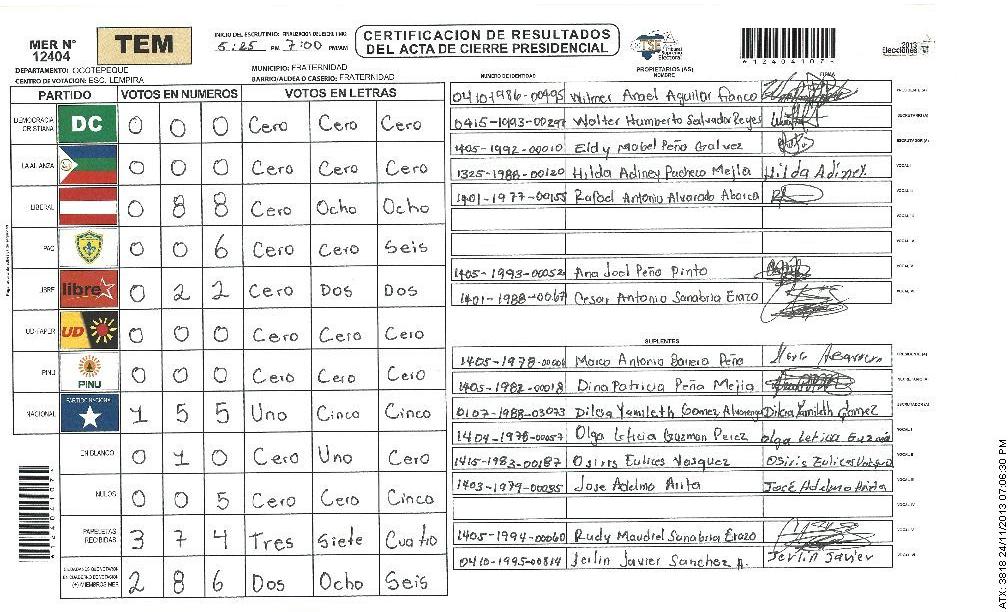 MER N° 12404
TEM
INICIO DEL ESCRUTINIO: FINALIZACION DEL ESCRUTINIO
5:25 PM 7:00 PM/AM
CERTIFICACION DE RESULTADOS
DEL ACTA DE CIERRE PRESIDENCIAL
TSE Tribunal Supremo Electoral
12404107
2013
Elecciones
DEPARTAMENTO: OCOTEPEQUE
MUNICIPIO: FRATERNIDAD
CENTRO DE VOTACION: ESC. LEMPIRA
BARRIO/ALDEA O CASERIO: FRATERNIDAD
PARTIDO VOTOS EN NUMEROS VOTOS EN LETRAS
DEMOCRACIA CRISTIANA DC 0 0 0 Cero Cero Cero
LA ALIANZA 0 0 0 Cero Cero Cero
LIBERAL 0 8 8 Cero Ocho Ocho
PAC 0 0 6 Cero Cero Seis
LIBRE libre 0 2 2 Cero Dos Dos
UD-FAPER UD 0 0 0 Cero Cero Cero
PINU PINU 0 0 0 Cero Cero Cero
NACIONAL PARTIDO NACIONAL 1 5 5 Uno Cinco Cinco
EN BLANCO 0 1 0 Cero Uno Cero
NULOS 0 0 5 Cero Cero Cinco
PAPELETAS RECIBIDAS 3 7 4 Tres Siete Cuatro
(+) MIEMBROS MER 2 8 6 Dos Ocho Seis
12404107
NUMERO DE IDENTIDAD PROPIETARIOS (AS) NOMBRE FIRMA
0410-1986-00495 Wilmer Anael Aguilar PRESIDENTE (A)
0415-1993-00297 Walter Humberto Salvador Reyes SECRETARIO (A)
1405-1992-00010 Eldy Mabel Peña Galvez ESCRUTADOR (A)
1325-1988-00120 Hilda Adiney Pacheco Mejia Hilda Adiney VOCAL I
1401-1977-00155 Rafael Antonio Alvarado Abarca VOCAL II
VOCAL III
VOCAL IV
1405-1993-00052 Ana Joel Peña Pinto VOCAL V
1401-1988-00067 Cesar Antonio Sanabria Erazo VOCAL VI
SUPLENTES
1405-1978-00006 Marco Antonio Barrera Peña PRESIDENTE (A)
1405-1982-00018 Dina Patricia Peña Mejia SECRETARIO (A)
0107-1988-03073 Dilcia Yamileth Gomez Alvarenga Dilcia Yamileth Gomez ESCRUTADOR (A)
1404-1978-00057 Olga Leticia Guzman Perez Olga Leticia Guzmán VOCAL I
1415-1983-00187 Osiris Eulices Vasquez Osiris Eulices Vasquez VOCAL II
1403-1979-00085 Jose Adelmo Arita José Adelmo Arita VOCAL III
1405-1994-00060 Rudy Maudiel Sanabria Erazo
0410-1995-00814 Jerlin Javier Sanchez A. Jerlin Javier
ATX: 3818 24/11/2013 07:06:30 PM